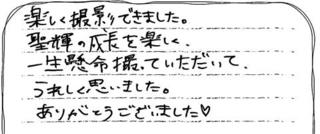 楽しく撮影できました。
聖輝の成長を楽しく、
一生懸命撮っていただいて、
うれしく思いました。
ありがとうございました♡